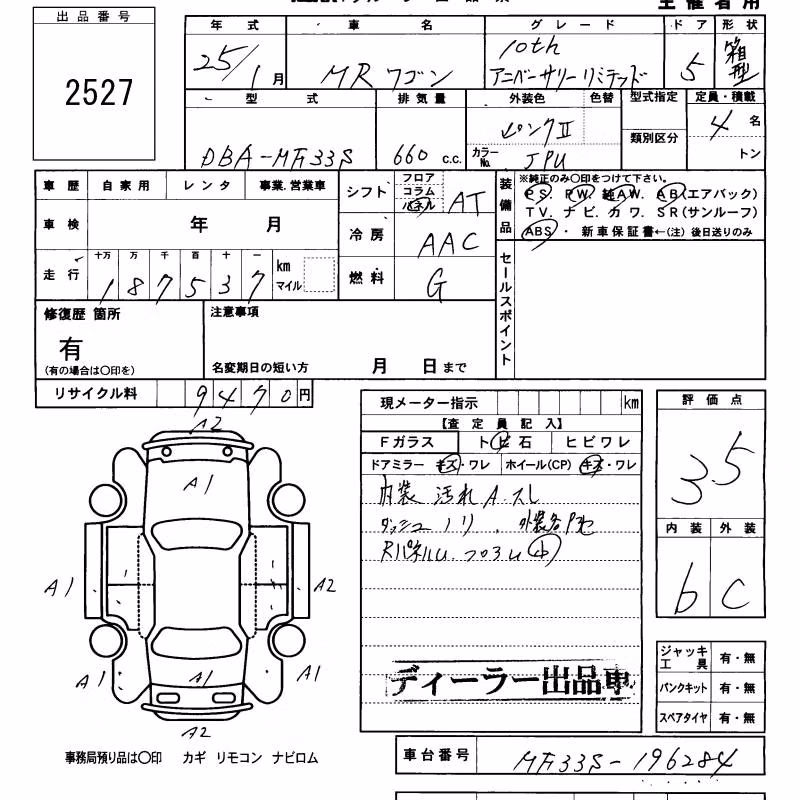 出品番号
2527
主催者用
年式 車名 グレード ドア 形状
25/1月 MRワゴン 10th アニバーサリーリミテッド 5 箱型
型式 排気量 外装色 色替 型式指定 定員・積載
DBA-MF33S 660 c.c. ピンクII 類別区分 4名
カラーNo. JPU トン
車歴 自家用 レンタ 事業.営業車
シフト フロア コラム パネル AT
車検 年 月
冷房 AAC
走行 十万 万 千 百 十 一
187537 km マイル
燃料 G
装備品
※純正のみ〇印をつけて下さい。
PS. PW. 純AW. AB(エアバック)
TV. ナビ. カワ. SR(サンルーフ)
ABS・ 新車保証書←(注) 後日送りのみ
セールスポイント
修復歴 箇所
有
(有の場合は〇印を)
注意事項
名変期日の短い方 月 日まで
リサイクル料 9470円
現メーター指示 km
【査定員記入】
Fガラス トビ石 ヒビワレ
ドアミラー キズ・ワレ ホイール(CP) キズ・ワレ
内装 汚れ A.スレ
ダッシュ ノリ . 外装各P他
RパネルU. フロアU 小
ディーラー出品車
評価点
3.5
内装 外装
b C
ジャッキ工具 有・無
パンクキット 有・無
スペアタイヤ 有・無
A2
A1
A1
A2
A1
A1
A1
A2
事務局預り品は〇印 カギ リモコン ナビロム
車台番号 MF33S-196284